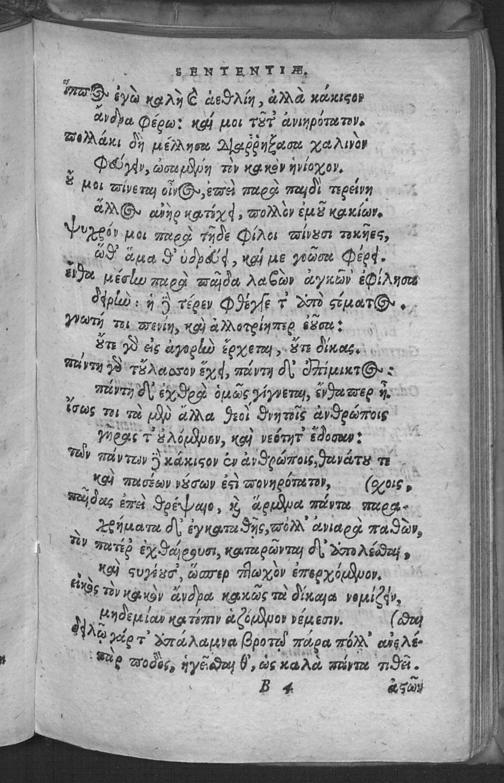 SENTENTIÆ.
ἵππος ἐγὼ καλὴ ἐ ἀεθλίη, ἀλλὰ κάκιςον
ἄνδρα φέρω: καί μοι τοῦτ' ἀνιηρότατον.
πολλάκι δὴ μέλλησα διαῤῥήξασα χαλινὸν
φεύγεν, ὠσαμένη τὸν κακὸν ἡνίοχον.
ὔ μοι πίνεται οἶνος, ἐπεὶ παρὰ παιδὶ τερείνη
ἄλλος ἀνὴρ κατέχει, πολλὸν ἐμοῦ κακίων.
ψυχρόν μοι παρὰ τῇδε φίλοι πίνουσι τοκῆες,
ὥθ' ἅμα θ' ὑδρεύει, καί με γοῶσα φέρει.
ἔνθα μέσην παρὰ παῖδα λαβὼν ἀγκῶν' ἐφίλησα
δειρὴν: ἡ δὲ τέρεν φθέγγετ' ἀπὸ ςόματος.
γνωτή τοι πενίη, καὶ ἀλλοτρίηπερ ἐοῦσα:
οὔτε γὰρ εἰς ἀγορὴν ἔρχεται, οὔτε δίκας.
πάντη γὰρ τὔλασσον ἔχει, πάντη δ' ἐπίμικτος:
πάντη δ' ἐχθρὰ ὁμῶς γίγνεται, ἔνθαπερ ᾖ.
ἴσως τοι τὰ μὲν ἄλλα θεοὶ θνητοῖς ἀνθρώποις
γῆρας τ' οὐλόμενον, καὶ νεότητ' ἔδοσαν:
τῶν πάντων δὲ κάκιςον ἐν ἀνθρώποις, θανάτου τε
καὶ πασέων νούσων ἐςὶ πονηρότατον, (οχοις,
παῖδας ἐπεὶ θρέψαιο, καὶ ἄρμενα πάντα παρα-
χρήματα δ' ἐγκαταθῇς, πόλλ' ἀνιαρὰ παθὼν,
τὸν πατέρ' ἐχθαίρουσι, καταρῶνται δ' ἀπολέσθαι,
καὶ ςυγέουσ', ὥσπερ πτωχὸν ἐπερχόμενον.
εἰκὸς τὸν κακὸν ἄνδρα κακῶς τὰ δίκαια νομίζειν,
μηδεμίαν κατόπιν ἁζόμενον νέμεσιν. (σθαι
δειλῷ γάρ τ' ἀπάλαμνα βροτῷ πάρα πόλλ' ἀνελέ-
πὰρ ποδὸς, ἡγεῖσθαι θ', ὡς καλὰ πάντα τιθεῖ.
B 4 ἀςῶν